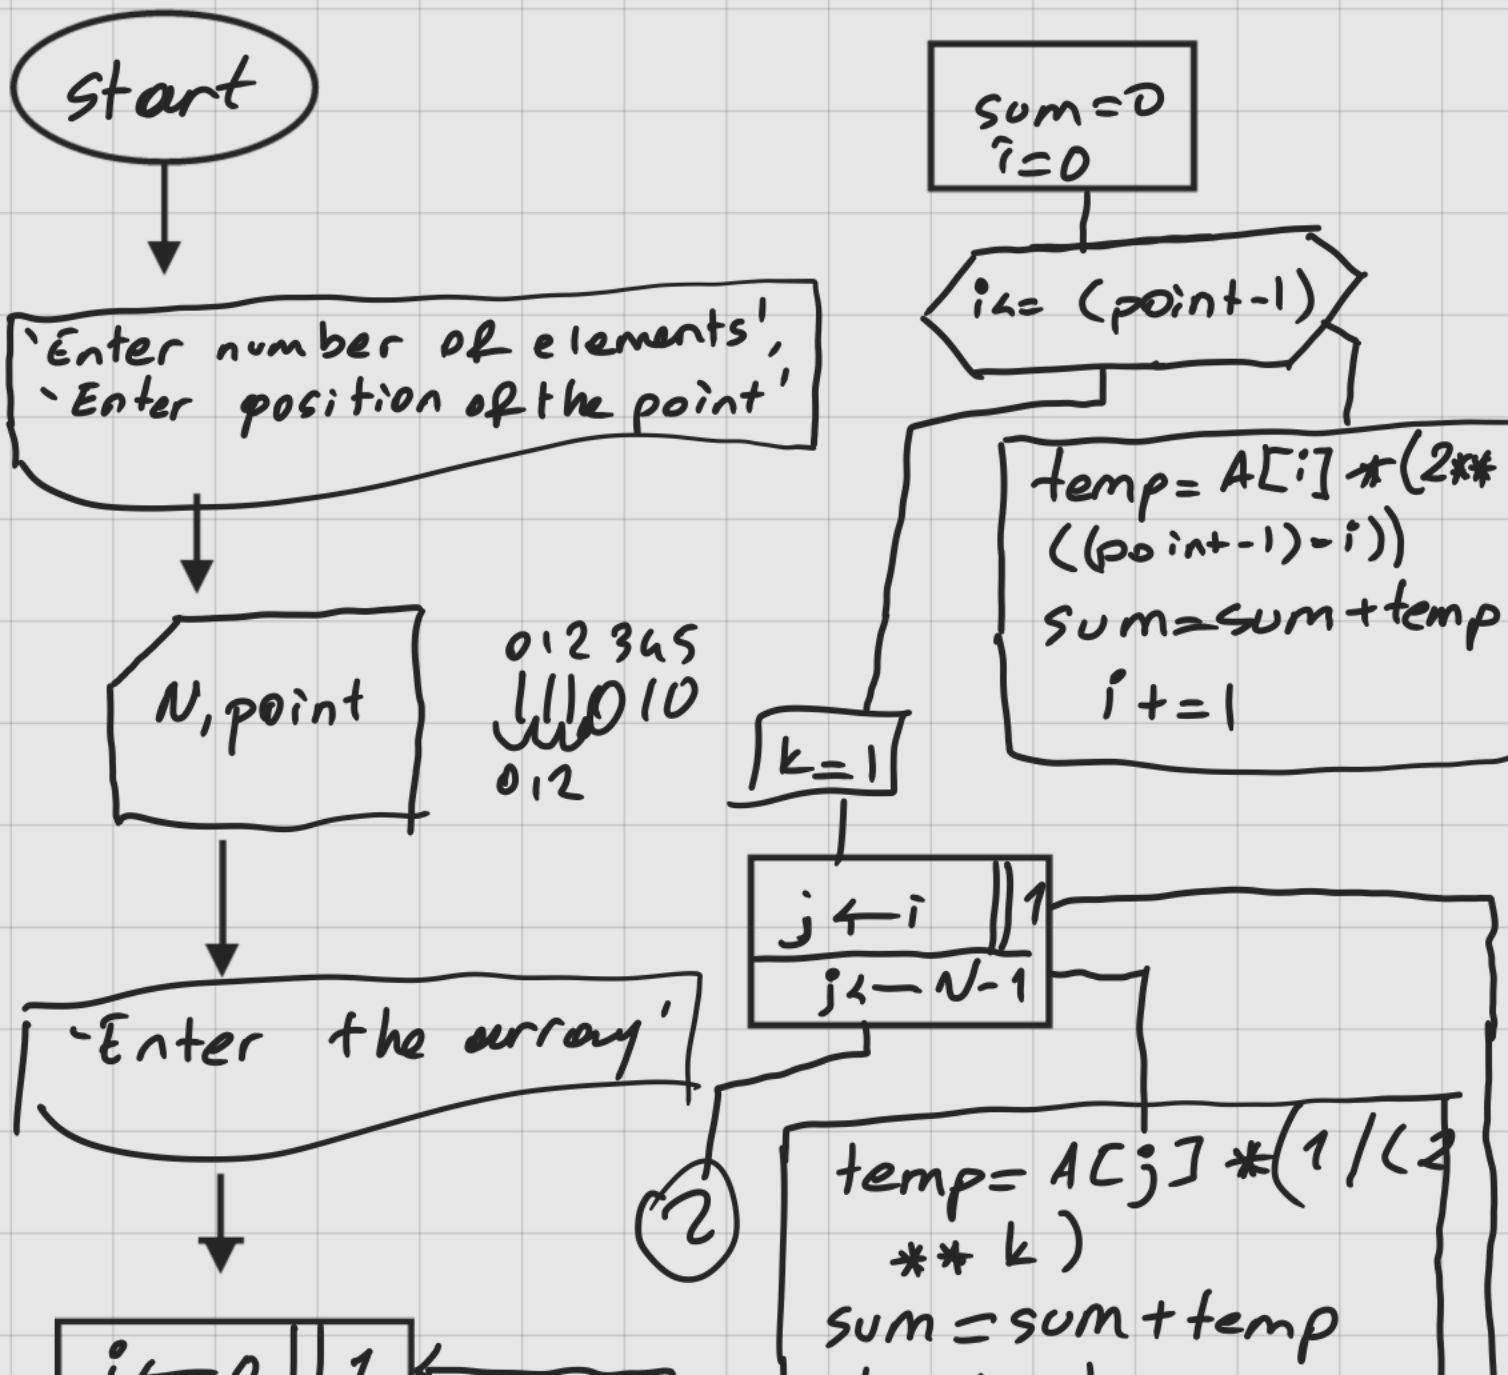 start
'Enter number of elements',
'Enter position of the point'
N, point
0 1 2 3 4 5
1 1 1 0 1 0
0 1 2
'Enter the array'
sum=0
i=0
i<= (point-1)
temp= A[i] *(2**
((point-1)-i))
sum=sum+temp
i+=1
k=1
j ← i 1
j ← N-1
2
temp= A[j] *(1/(2
** k)
sum=sum+temp